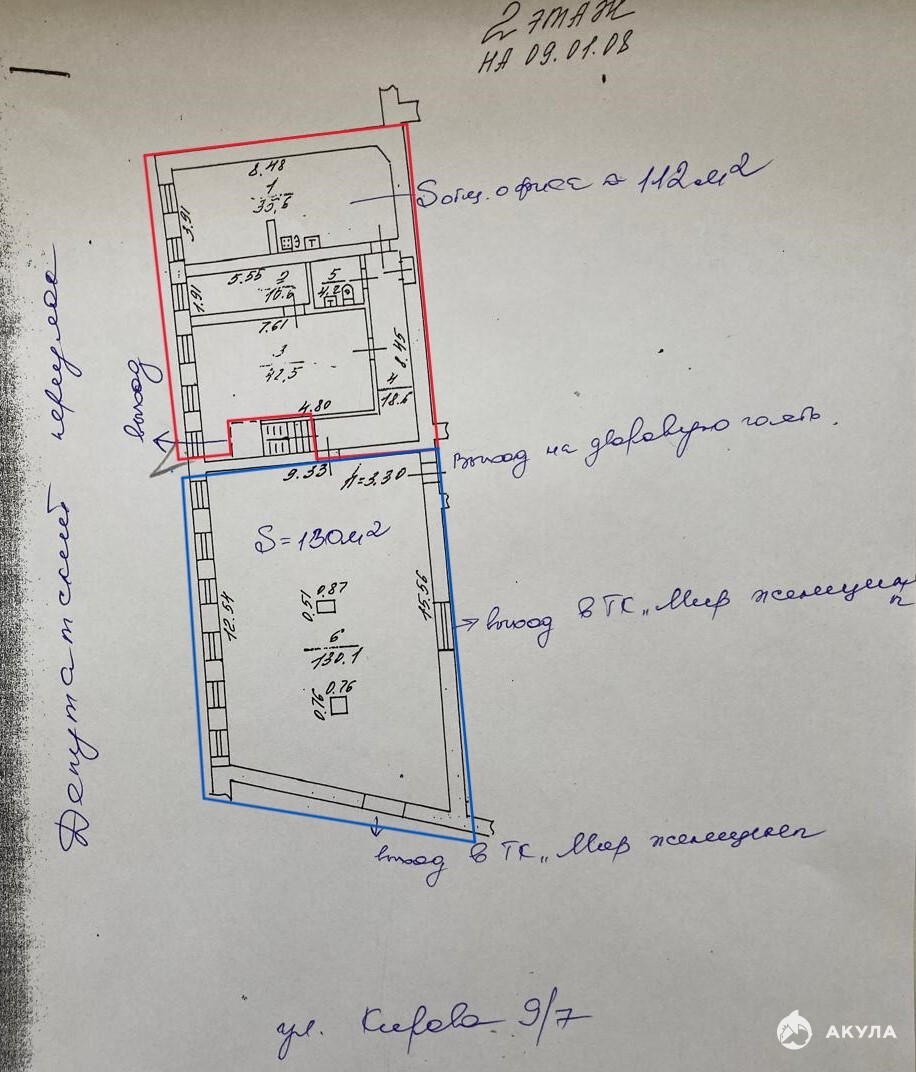 2 ЭТАЖ
НА 09.01.08
8.48
1
33,6
Sобщ. офиса ≈ 112 м2
3.91
Э
Т
5.55
2
10.6
5
4.2
Т
1.91
7.61
3
42,5
8.45
4
18.6
4.80
выход
Депутатский переулок
9.33
h=3.30
Выход на дворовую часть.
S=130м2
0.51
0.87
12.54
15.56
6
130.1
0.76
0.76
выход в ТК „Мир женщины"
выход в ТК „Мир женщины"
ул. Кирова 9/7
АКУЛА